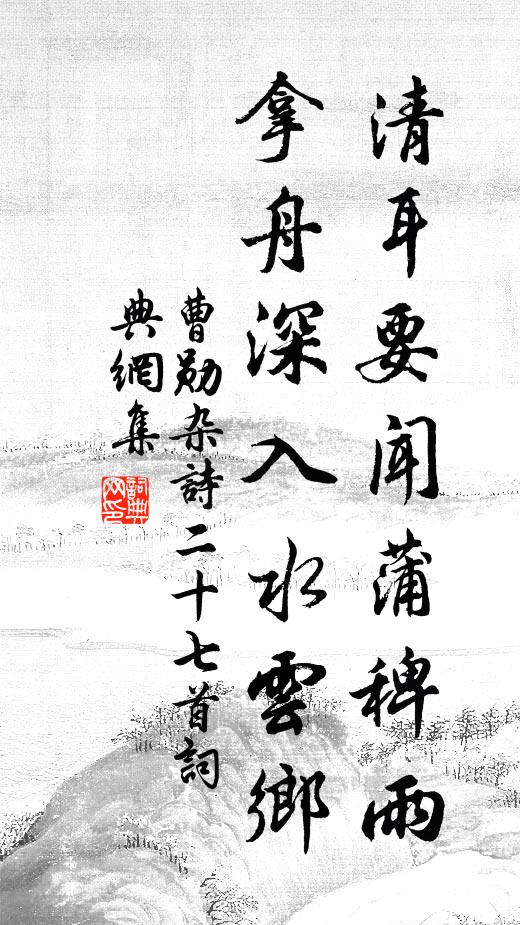 清耳要聞蒲稗雨
拿舟深入水雲鄉
曹勛杂詩二十七首詞
典網集
詞典
网印